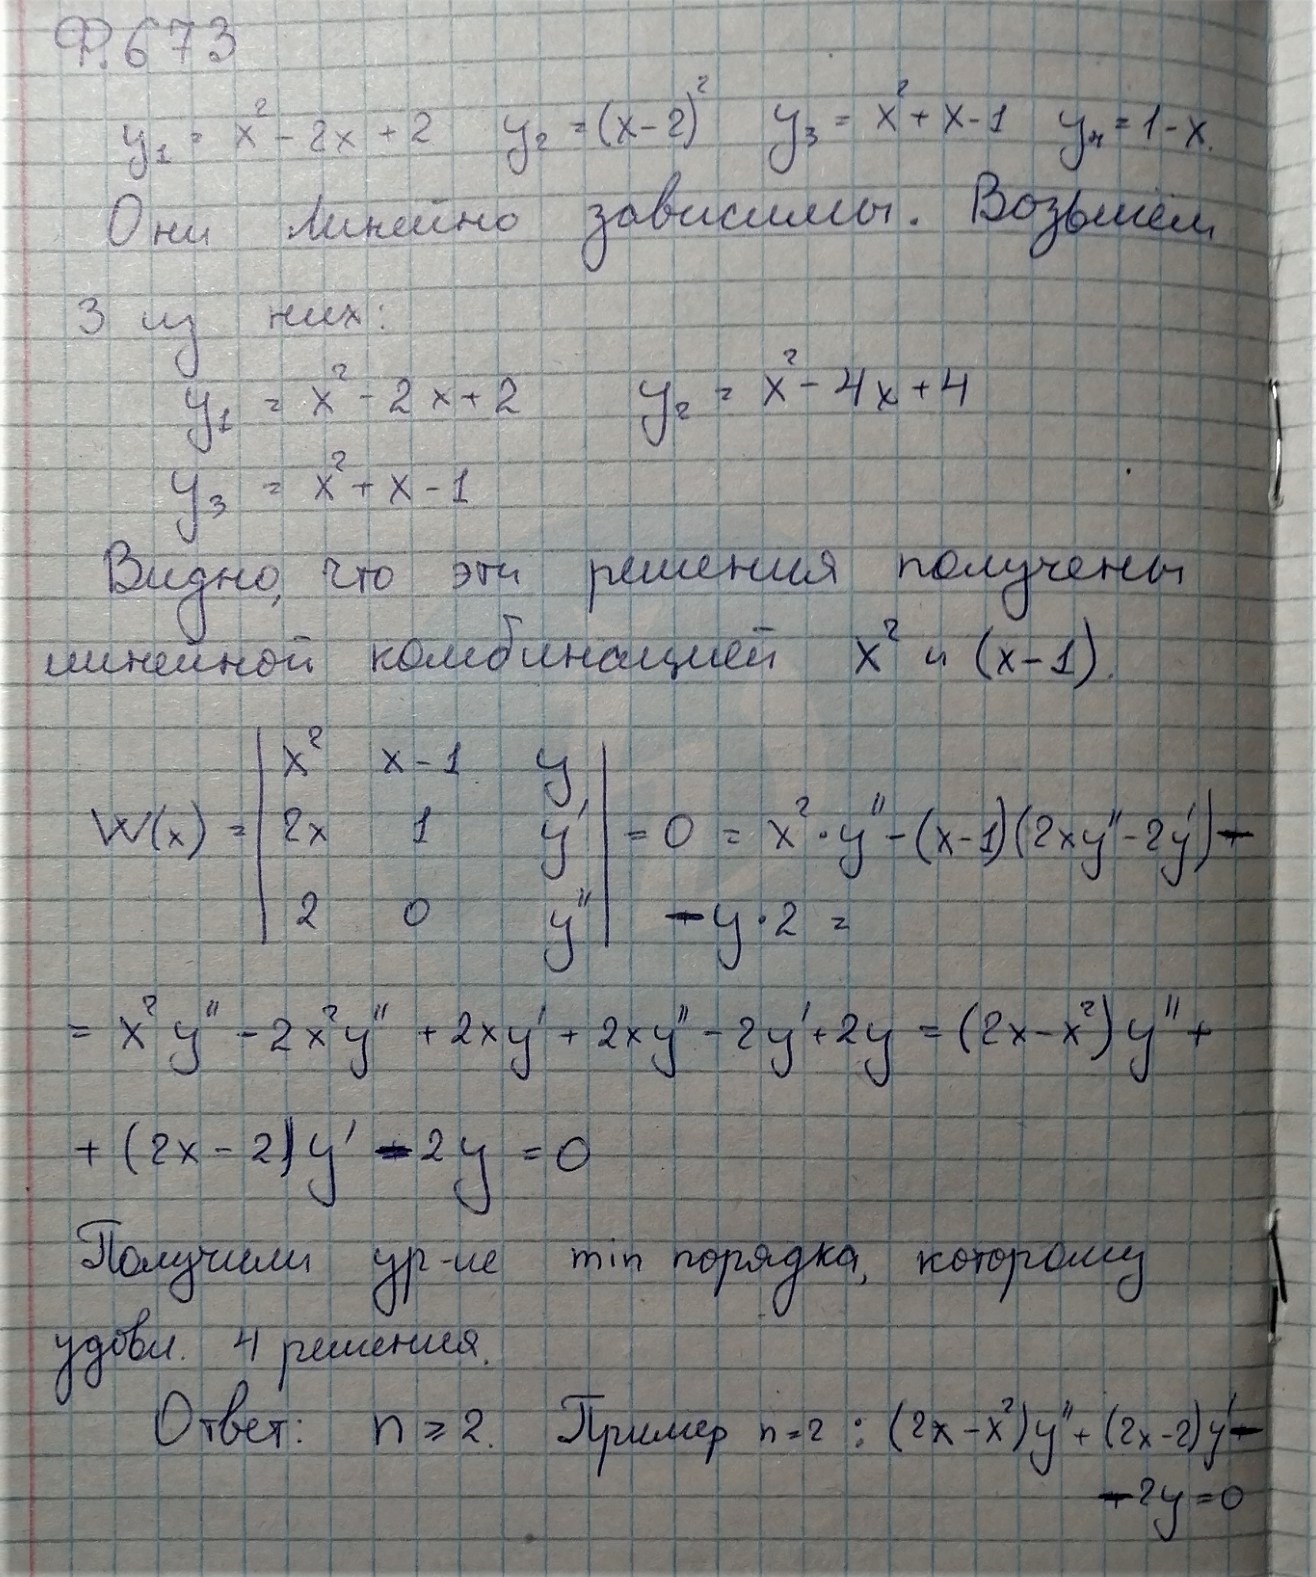 Ф.673
y₁ = x² - 2x + 2 y₂ = (x-2)² y₃ = x² + x - 1 y₄ = 1 - x.
Они линейно зависимы. Возьмем
3 из них:
y₁ = x² - 2x + 2 y₂ = x² - 4x + 4
y₃ = x² + x - 1
Видно, что эти решения получены
линейной комбинацией x² и (x-1).
W(x) = | x² x-1 y |
| 2x 1 y' | = 0 = x²·y'' - (x-1)(2xy'' - 2y') -
| 2 0 y'' | - y·2 =
= x²y'' - 2x²y'' + 2xy' + 2xy'' - 2y' + 2y = (2x - x²)y'' +
+ (2x - 2)y' - 2y = 0
Получили ур-ие min порядка, которому
удовл. 4 решения.
Ответ: n ≥ 2. Пример n=2 : (2x - x²)y'' + (2x - 2)y' -
- 2y = 0